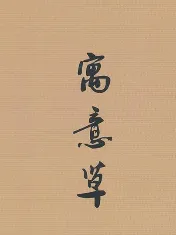 寓意草